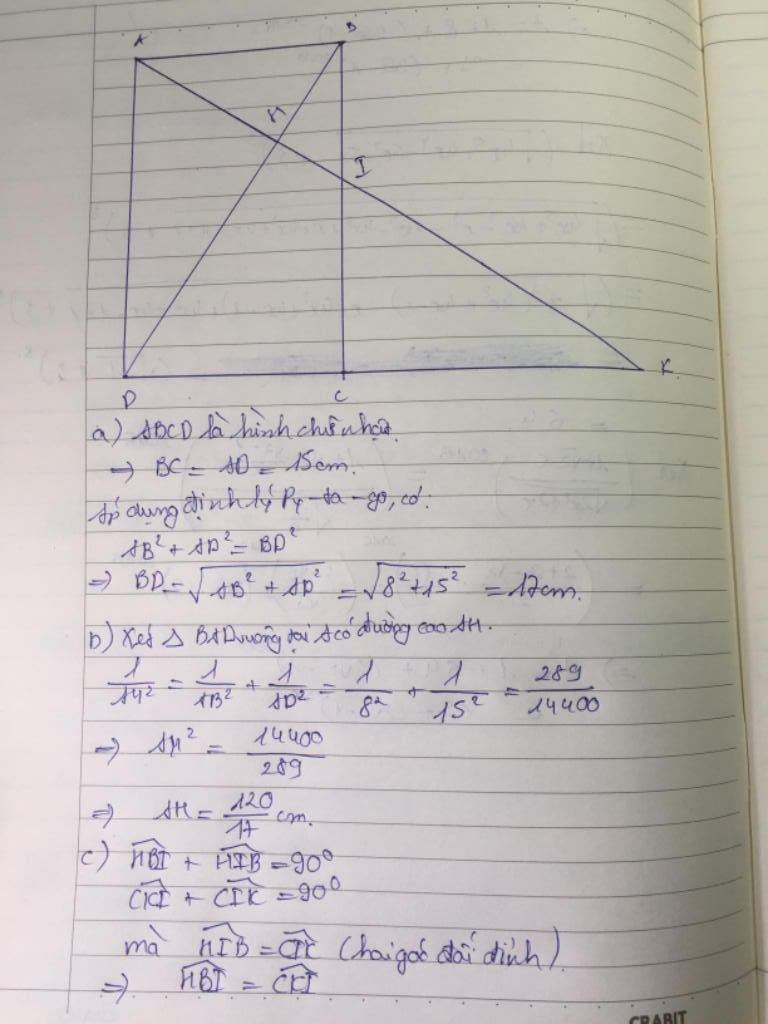 A
B
H
I
D
C
K
a) ABCD là hình chữ nhật.
→ BC = AD = 15cm.
Áp dụng định lý Py-ta-go, có:
AB² + AD² = BD²
⇒ BD = √(AB² + AD²) = √(8² + 15²) = 17cm.
b) Xét △ BAD vuông tại A có đường cao AH.
1/AH² = 1/AB² + 1/AD² = 1/8² + 1/15² = 289/14400
⇒ AH² = 14400/289
⇒ AH = 120/17 cm.
c) \widehat{HBI} + \widehat{HIB} = 90⁰
\widehat{CKI} + \widehat{CIK} = 90⁰
mà \widehat{HIB} = \widehat{CIK} (hai góc đối đỉnh)
⇒ \widehat{HBI} = \widehat{CKI}
CRABIT